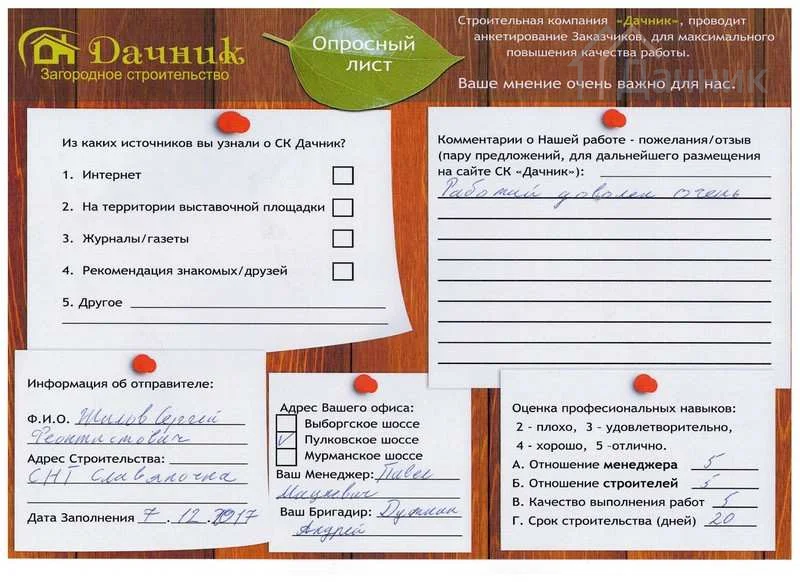 Дачник
Загородное строительство
Опросный
лист
Строительная компания «Дачник», проводит
анкетирование Заказчиков, для максимального
повышения качества работы.
Ваше мнение очень важно для нас.
Дачник
Из каких источников вы узнали о СК Дачник?
1. Интернет
2. На территории выставочной площадки
3. Журналы/газеты
4. Рекомендация знакомых/друзей
5. Другое
Комментарии о Нашей работе - пожелания/отзыв
(пару предложений, для дальнейшего размещения
на сайте СК «Дачник»):
Работой доволен очень
Информация об отправителе:
Ф.И.О. Жилов Сергей
Феоктистович
Адрес Строительства:
СНТ Славяночка
Дата Заполнения 7.12.2017
Адрес Вашего офиса:
Выборгское шоссе
Пулковское шоссе
Мурманское шоссе
Ваш Менеджер: Павел
Мацкевич
Ваш Бригадир:
Андрей
Оценка професиональных навыков:
2 - плохо, 3 - удовлетворительно,
4 - хорошо, 5 -отлично.
А. Отношение менеджера 5
Б. Отношение строителей 5
В. Качество выполнения работ 5
Г. Срок строительства (дней) 20